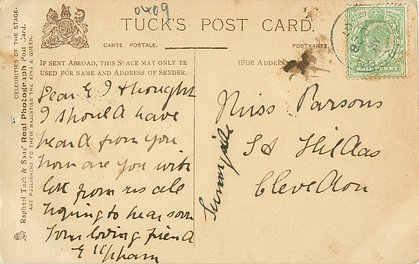 0x09
TUCK'S POST CARD.
CARTE POSTALE.
POSTKARTE.
IF SENT ABROAD, THIS SPACE MAY ONLY BE
USED FOR NAME AND ADDRESS OF SENDER.
(FOR ADDRESS
CELEBRITIES OF THE STAGE.
Raphael Tuck & Sons' "Real Photograph" Post Card.
ART PUBLISHERS TO THEIR MAJESTIES THE KING & QUEEN.
Dear E I thought
I should have
heard from you
how are you with
lot from us all
hoping to hear soon
Your loving friend
E Upham
Miss Parsons
St Hildas
Sunnyside
Clevedon